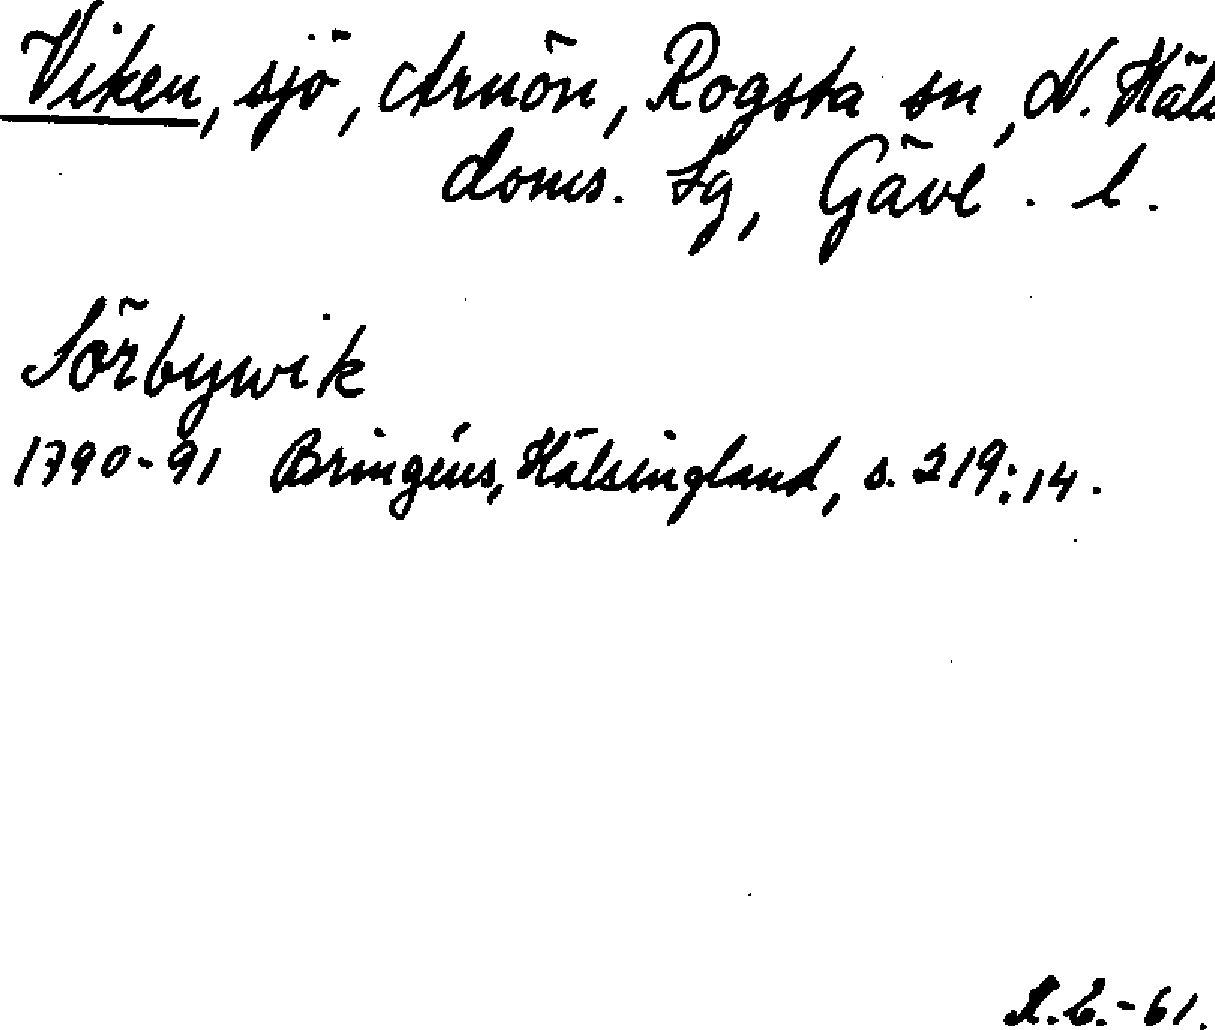 Viken, sjö, Arnön, Rogsta sn, N. Häls
doms. Lg, Gävl. l.
Sörbywik
1790-91 Bringéus, Hälsingland, s. 219:14.
R.C.-61.